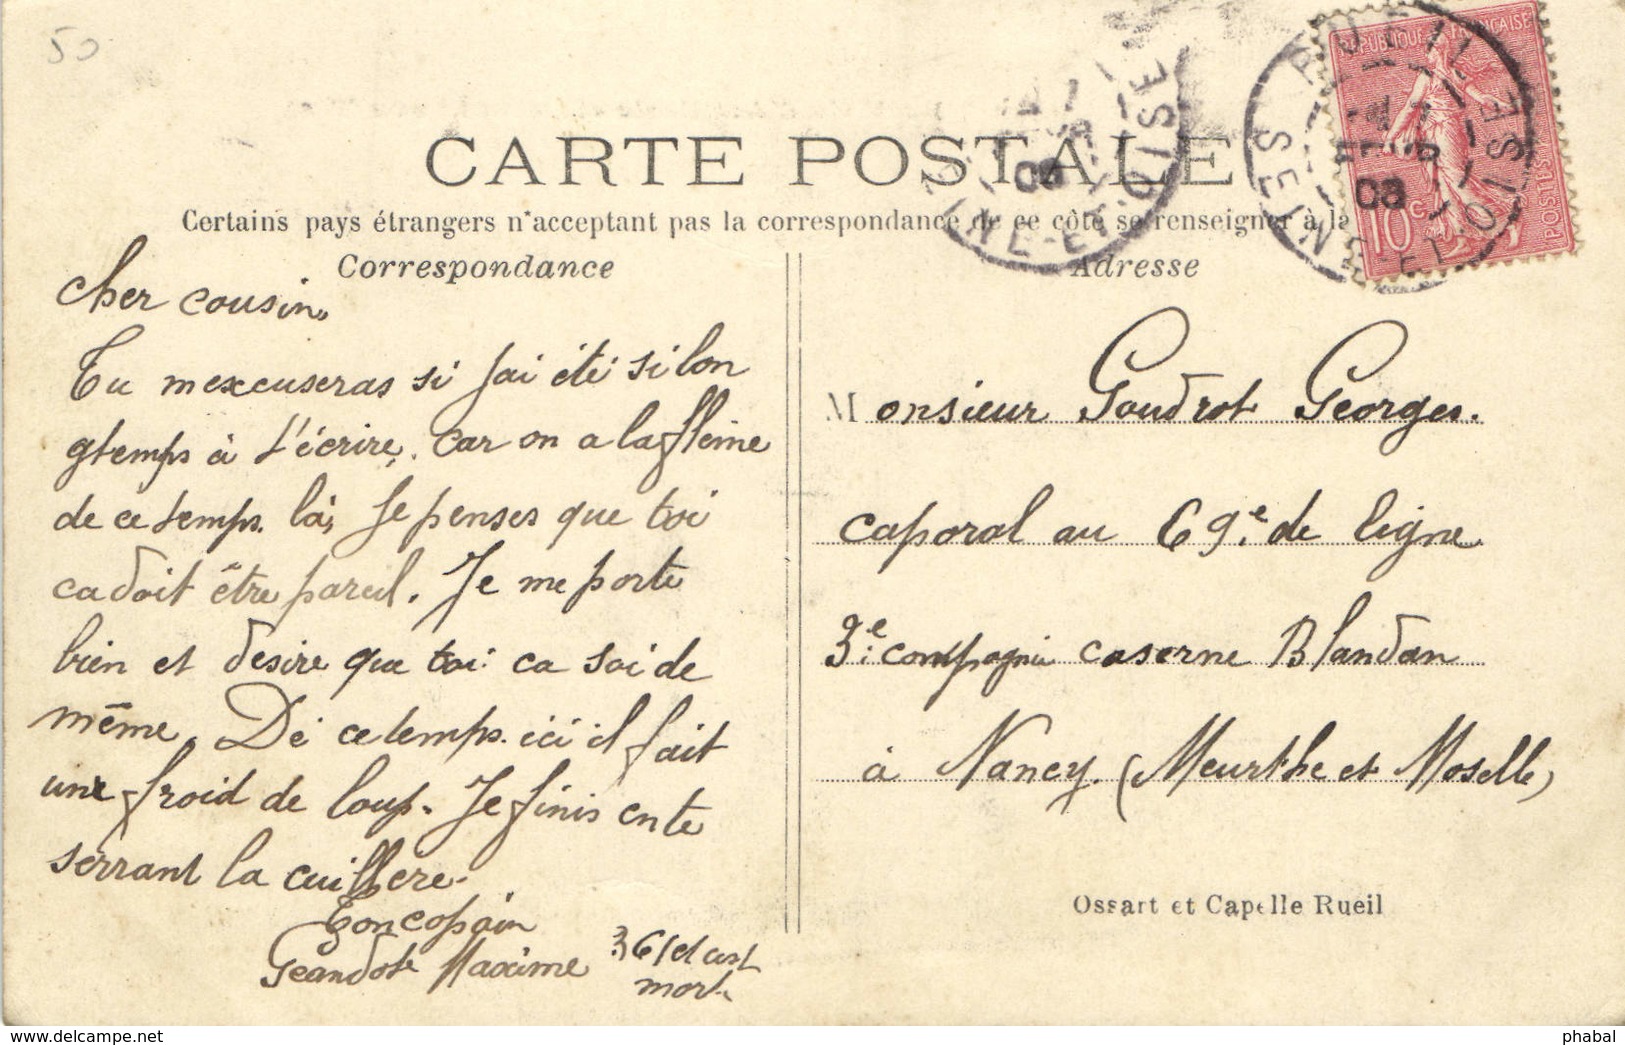 50
CARTE POSTALE
Certains pays étrangers n'acceptant pas la correspondance de ce côté se renseigner à la
Correspondance
cher cousin.
Tu mexcuseras si jai été si lon
gtemps à t'écrire, car on a la fleme
de ce temps là, je penses que toi
ca doit être pareil. Je me porte
bien et desire que toi ca soi de
même. Dé ce temps ici il fait
une froid de loup. Je finis en te
serrant la cuillere.
Ton copain
Maxime
36 et cest
mort
Adresse
Monsieur Goudrot Georges.
caporal au 69e de ligne
3e compagnie caserne Blandan
à Nancy. (Meurthe et Moselle)
Ossart et Capelle Rueil
REPUBLIQUE FRANÇAISE
10c
POSTES
RUEIL
SEINE-ET-OISE
08
SEINE-ET-OISE
08
https://www.delcampe.net
phabal